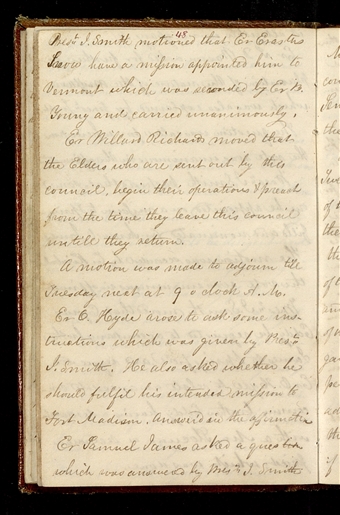 48
Pest. J. Smith motioned that Er Erastus
Snow have a mission appointed him to
Vermont which was seconded by Er B.
Young and carried unanimously.
Er Willard Richards moved that
the Elders who are sent out by this
council, begin their operations & preach
from the time they leave this council
untill they return.
A motion was made to adjourn till
Tuesday next at 9 o clock A. M.
Er O. Hyde arose to ask some ins-
tructions which was given by Prest.
J. Smith. He also asked whether he
should fulfil his intended mission to
Fort Madison. Answerd in the affirmative
Er Samuel James asked a question
which was answered by Prest. J. Smith